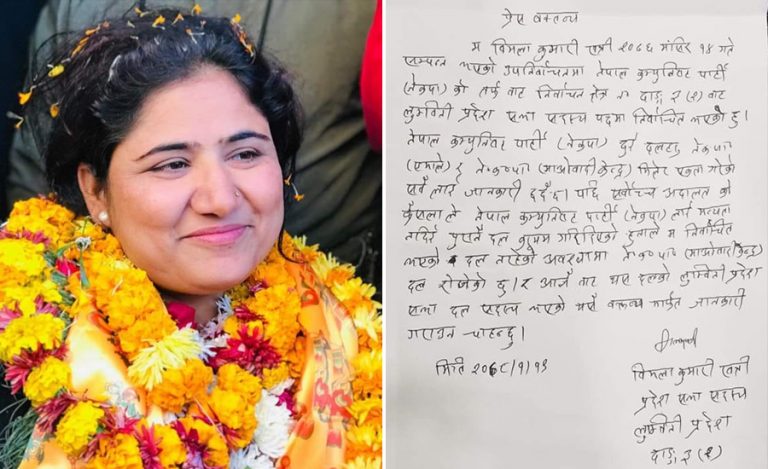 प्रेस वक्तव्य
म विमला कुमारी खत्री २०७६ मंसिर १४ गते
सम्पन्न भएको उपनिर्वाचनमा नेपाल कम्युनिष्ट पार्टी
(नेकपा) को तर्फ बाट निर्वाचन क्षेत्र नं दाङ ३ (२) बाट
लुम्विनी प्रदेश सभा सदस्य पदमा निर्वाचित भएको हु।
नेपाल कम्युनिष्ट पार्टी (नेकपा) दुई दलहरु ने.क.पा
(एमाले) र ने.क.पा (माओवादी केन्द्र) मिलेर एकता गरेको
सबै लाई जानकारी छदैछ। पछि सर्वोच्च अदालत को
फैसला ले नेपाल कम्युनिष्ट पार्टी (नेकपा) लाई मान्यता
नदिई पुरानै दल कायम गरिदिएको हुनाले म निर्वाचित
भएको दल नरहेको अवस्थामा ने.क.पा (माओवादी केन्द्र)
दल रोजेको छु। र आजै बाट यस दलको लुम्विनी प्रदेश
सभा दल सदस्य भएको यसै वक्तव्य मार्फत जानकारी
गराउन चाहन्छु।
मिति २०७८/१/१९
विमला कुमारी खत्री
प्रदेश सभा सदस्य
लुम्विनी प्रदेश
दाङ ३ (२)